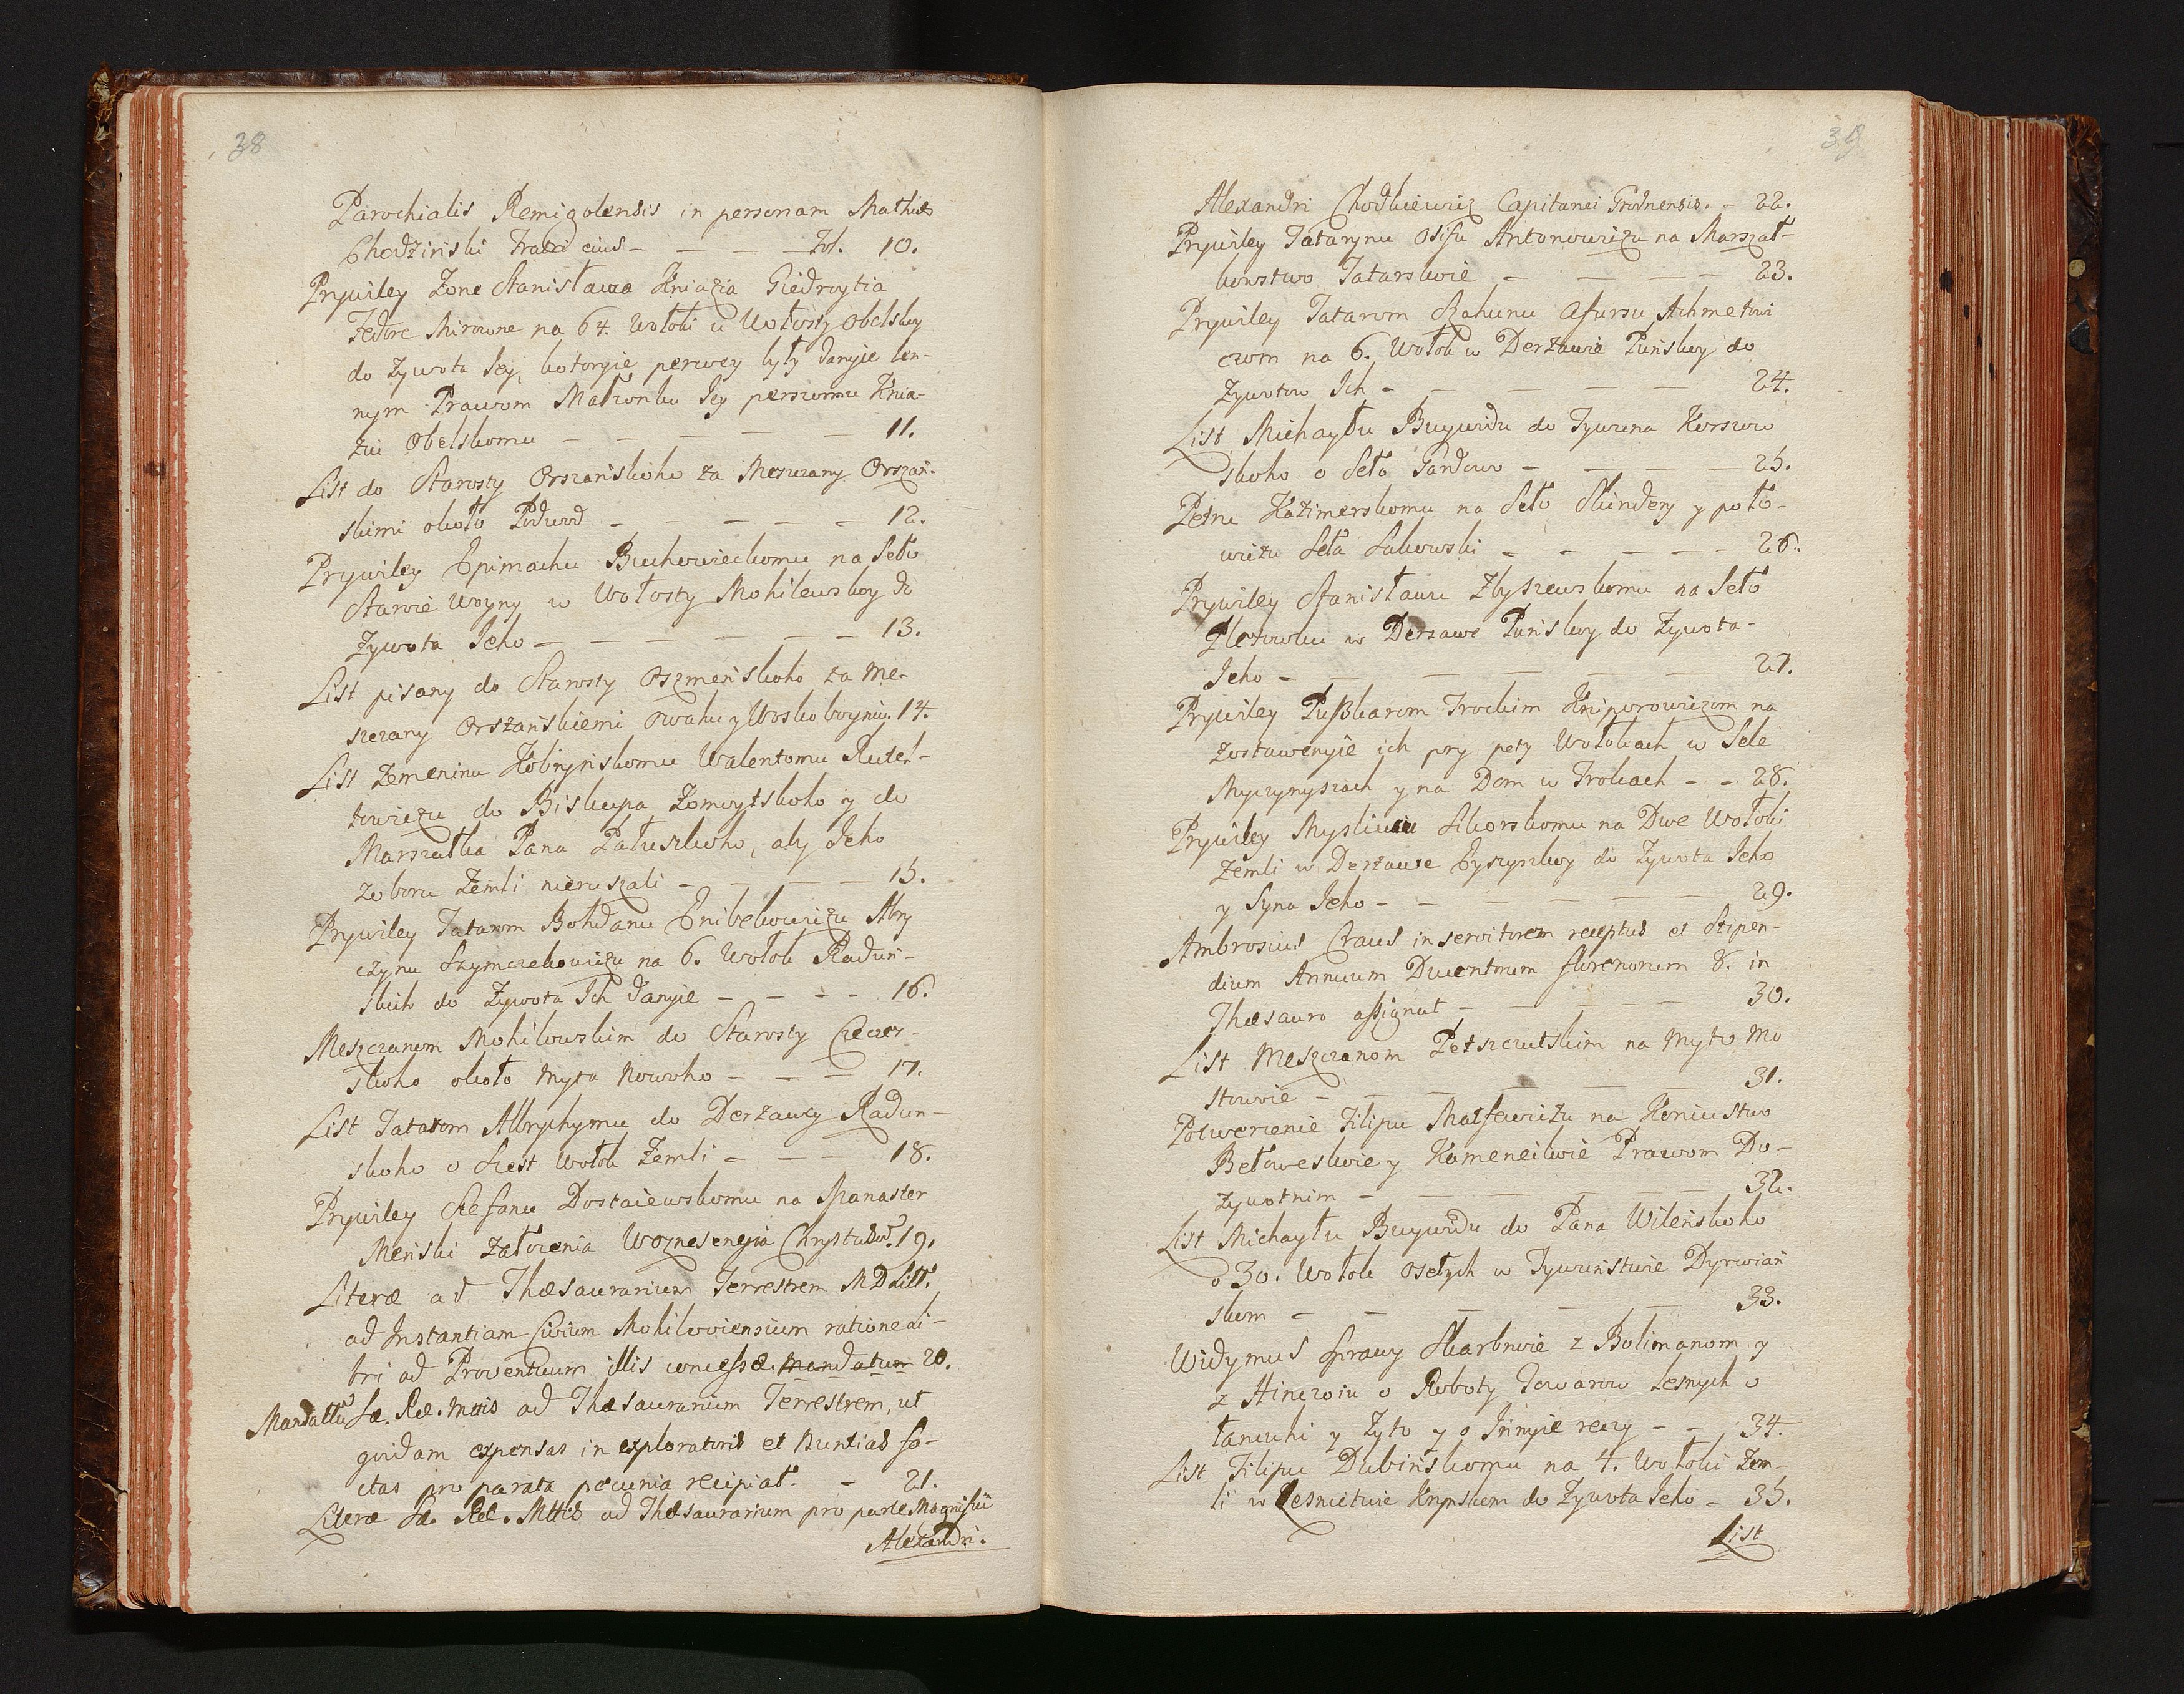 38
Parochialis Remigolensis in personam Mathiæ
Chodziński Fratri eius - - - - Fol. 10.
Prywiley Zone Stanisława Kniazia Giedroytia
Fedore Mirowne na 64. Wołoki u Wołosty Obelskoy
do Zywota Jey, kotoryie perwey były danyie len-
nym Prawom Małzonku Jey perszomu Knia-
ziu Obelskomu - - - - - - 11.
List do Starosty Orszańskoho za Meszczany Orszań-
skimi około Podwod - - - - - 12.
Prywiley Epimachu Buchowieckomu na Seło
Stawie Woyny w Wołosty Mohilewskoy do
Zywota Jeho - - - - - - 13.
List pisany do Starosty Oszmeńskoho za Me-
szczany Orszańskiemi o wahu y Woskoboyniu. 14.
List Zemeninu Kobryńskomu Walentomu Rutel-
towiczu do Biskupa Zomoytskoho y do
Marszałka Pana Pałuszkoho, aby Jeho
zoboru Zemli nieruszali - - - - 15.
Prywiley Tatarom Bohdanu Enibekowiczu Abry
czynu Szymczekowiczu na 6. Wołok Raduń-
skich do Zywota Jch danyie - - - - 16.
Meszczanom Mohilowskim do Starosty Czeczer-
skoho około Myta Nowoho - - - 17.
List Tatarom Albryhymu do Derzawcy Radun-
skoho o Szest Wołok Zemli - - - 18.
Prywiley Stefanu Dostaiewskomu na Manaster
Meński Załozenia Woznesenyia Chrystusow. 19.
Literæ ad Thesaurarium Terrestrem M D Litt.
ad Jnstantiam Civium Mohiloviensium ratione ali-
tri ad Proventuum illis concessæ. Mandatum 20.
Mandattū Sæ. Ræ. Mttis ad Thesaurarium Terrestrem, ut
quidam expensas in exploratoris et Nuntias fa-
ctas pro parata pecunia recipiat. - 21.
Literæ Sæ. Ræ. Mttis ad Thesaurarium pro parte Magnifici
Alexandri.
39
Alexandri Chodkiewicz Capitanei Grodnensis. - 22.
Prywiley Tatarynu Osifu Antonowiczu na Marszał-
konstwo Tatarskoie - - - - - 23.
Prywiley Tatarom Szahunu Afursu Achmetowi
czom na 6. Wołok w Derzawie Puńskoy do
Zywotow Jch - - - - - 24.
List Michayłu Buywidu do Tywuna Korszow
skoho o Seło Gardowo - - - - 25.
Petru Kazimerskomu na Seło Skindery y poło-
wizu Seła Sakowski - - - - - 26.
Prywiley Stanisławu Zbyszewskomu na Seło
Plerowku w Derzawe Puńskoy do Zywota
Jeho - - - - - - 27.
Prywiley Pußkarom Trockim Kniporowiczom na
zostawenyie ich pry pety Wołokach w Sele
Myczynyszach y na Dom w Trokach - - 28.
Prywiley Mysliwcu Sikorskomu na Dwe Wołoki
Zemli w Derzawe Eyszyszkoy do Zywota Jeho
y Syna Jeho - - - - - - 29.
Ambrosius Craus in servitorem receptus et Stipen-
dium Annuum Ducentrum florenorum 8. in
Thesauro assignat - - - - 30.
List Meszczanom Petszczutskim na Myto Mo
stowoie - - - - - 31.
Potwerzenie Filipu Matfewiczu na Koniustwo
Bełoweskoie y Kameneckoie Prawom Do-
zywotnim - - - - - 32.
List Michayłu Buywidu do Pana Wileńskoho
o 30. Wołok osełych w Tywuństwie Dyrwiań
skom - - - - - 33.
Widymus Sprawy Skarbnoie z Bolimanom y
z Hinczoiu o Roboty Towarow Lesnych o
łancuhi y Zyto y o Jnnyie reczy - - 34.
List Filipu Dubińskomu na 4. Wołoki Zem-
li w Lesnictwie Knynskom do Zywota Jeho - 35.
List